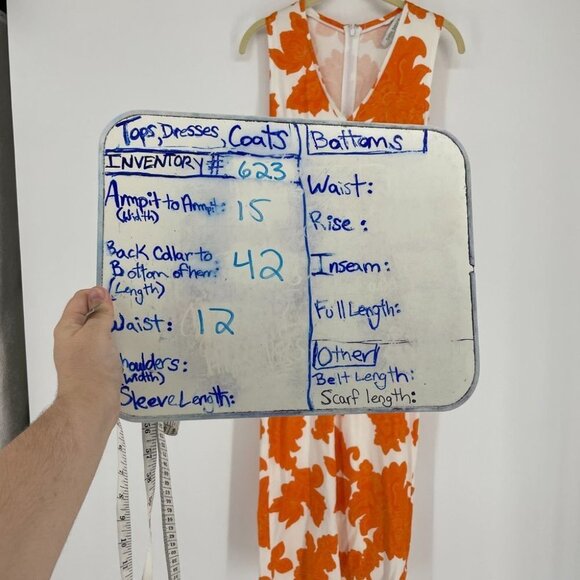 Tops, Dresses, Coats
INVENTORY # 623
Armpit to Armpit: 15
(Width)
Back Collar to
Bottom of hem: 42
(Length)
Waist: 12
houlders:
Width)
Sleeve Length:
Bottoms
Waist:
Rise:
Inseam:
Full Length:
Other
Belt Length:
Scarf length: